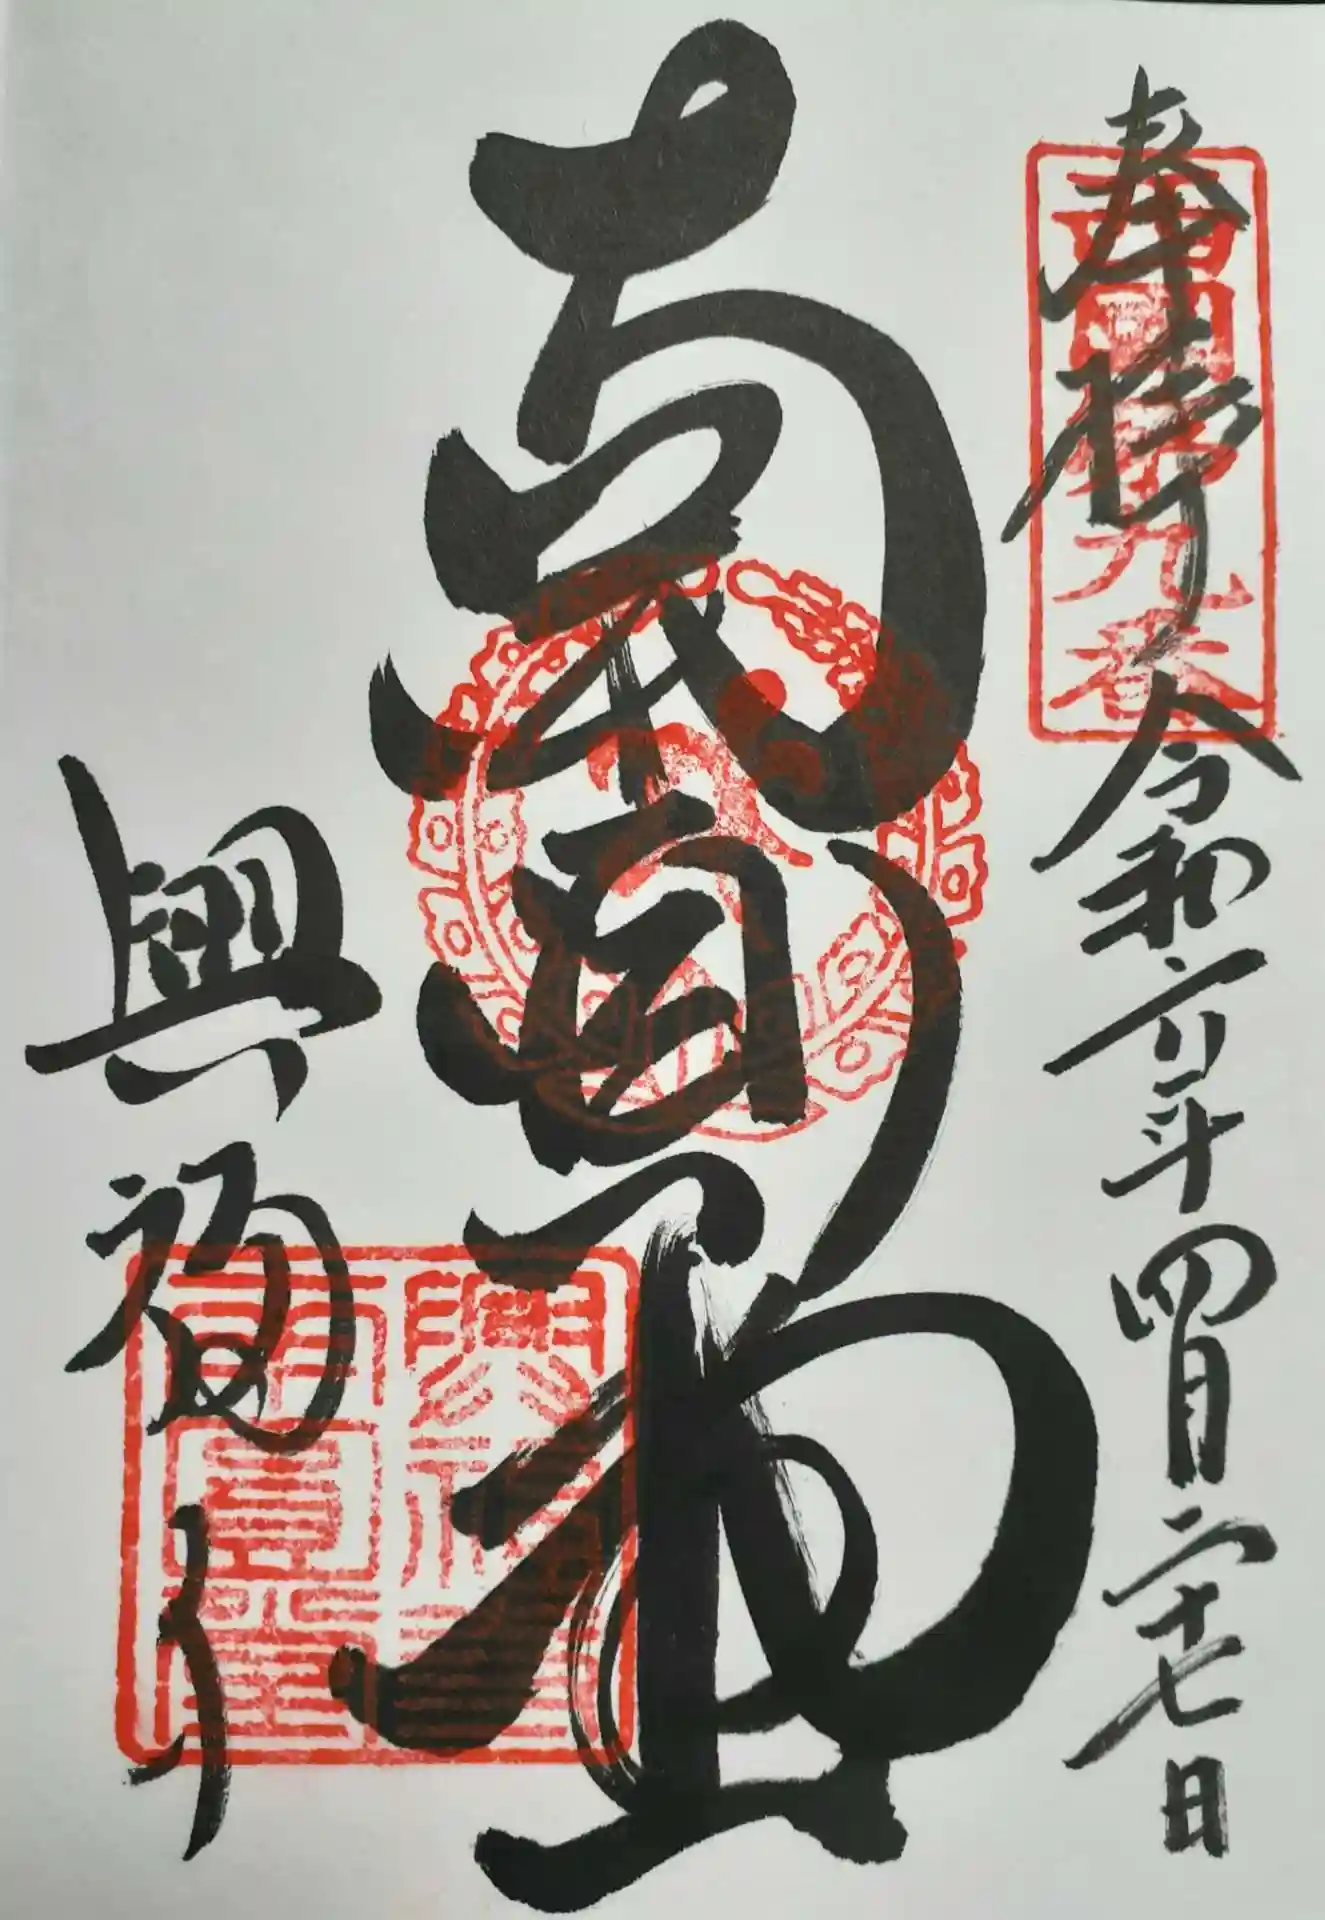 奉拝 令和六年四月二十七日
西國第九番
南圓堂
興福寺